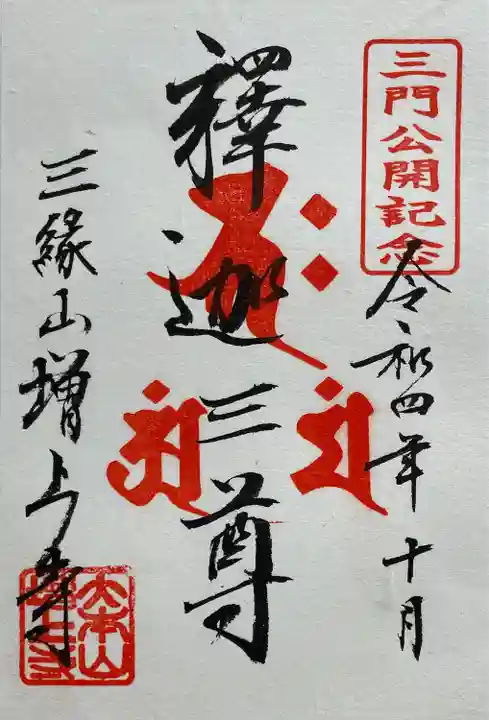 三門公開記念
令和四年十月
釋迦三尊
三緣山增上寺
大本山
增上寺